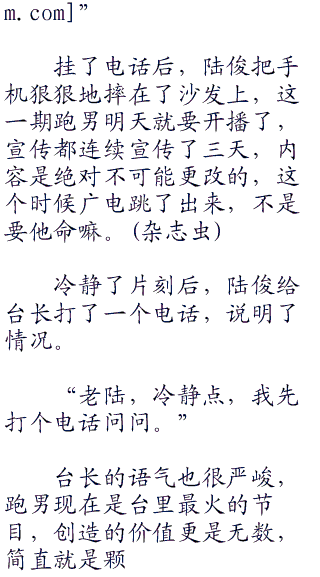 m.com]”
挂了电话后，陆俊把手
机狠狠地摔在了沙发上，这
一期跑男明天就要开播了，
宣传都连续宣传了三天，内
容是绝对不可能更改的，这
个时候广电跳了出来，不是
要他命嘛。(杂志虫)
冷静了片刻后，陆俊给
台长打了一个电话，说明了
情况。
“老陆，冷静点，我先
打个电话问问。”
台长的语气也很严峻，
跑男现在是台里最火的节
目，创造的价值更是无数，
简直就是颗